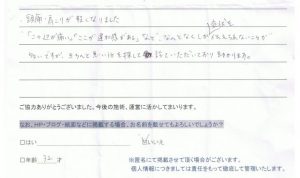 頭痛・肩こりが軽くなりました
「この辺が痛い」「ここが違和感がある」など、なんとなくしか 伝えられないことが
多いですが、きちんと悪い所を探して 診ていただいており 助かります。
ご協力ありがとうございました。今後の施術、運営に活かしてまいります。
なお、HP・ブログ・紙面などに掲載する場合、お名前を載せてもよろしいでしょうか?
□はい
□いいえ
□年齢 32 才
※匿名にて掲載させて頂く場合がございます。
個人情報につきましては責任をもって徹底して管理いたします。